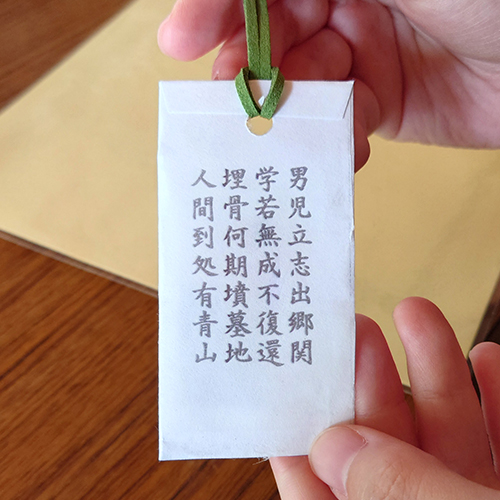 男児立志出郷関
学若無成不復還
埋骨何期墳墓地
人間到処有青山